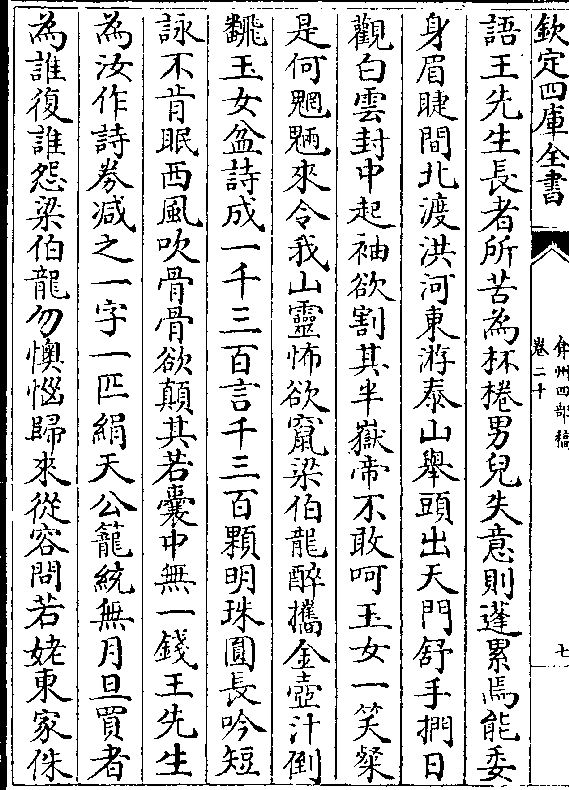 欽定四庫全書
弇州四部稿
卷二十
七
語王先生長者所苦為杯棬男兒失意則蓬累焉能委
身眉睫間北渡洪河東游泰山舉頭出天門舒手捫日
觀白雲封中起袖欲割其半嶽帝不敢呵玉女一笑粲
是何魍魎來令我山靈怖欲竄梁伯龍醉攜金壺汁倒
飜玉女盆詩成一千三百言千三百顆明珠圓長吟短
詠不肯眠西風吹骨骨欲顛其若囊中無一錢王先生
為汝作詩券减之一字一匹絹天公籠統無月旦買者
為誰復誰怨梁伯龍勿懊惱歸來從容問若姥東家侏